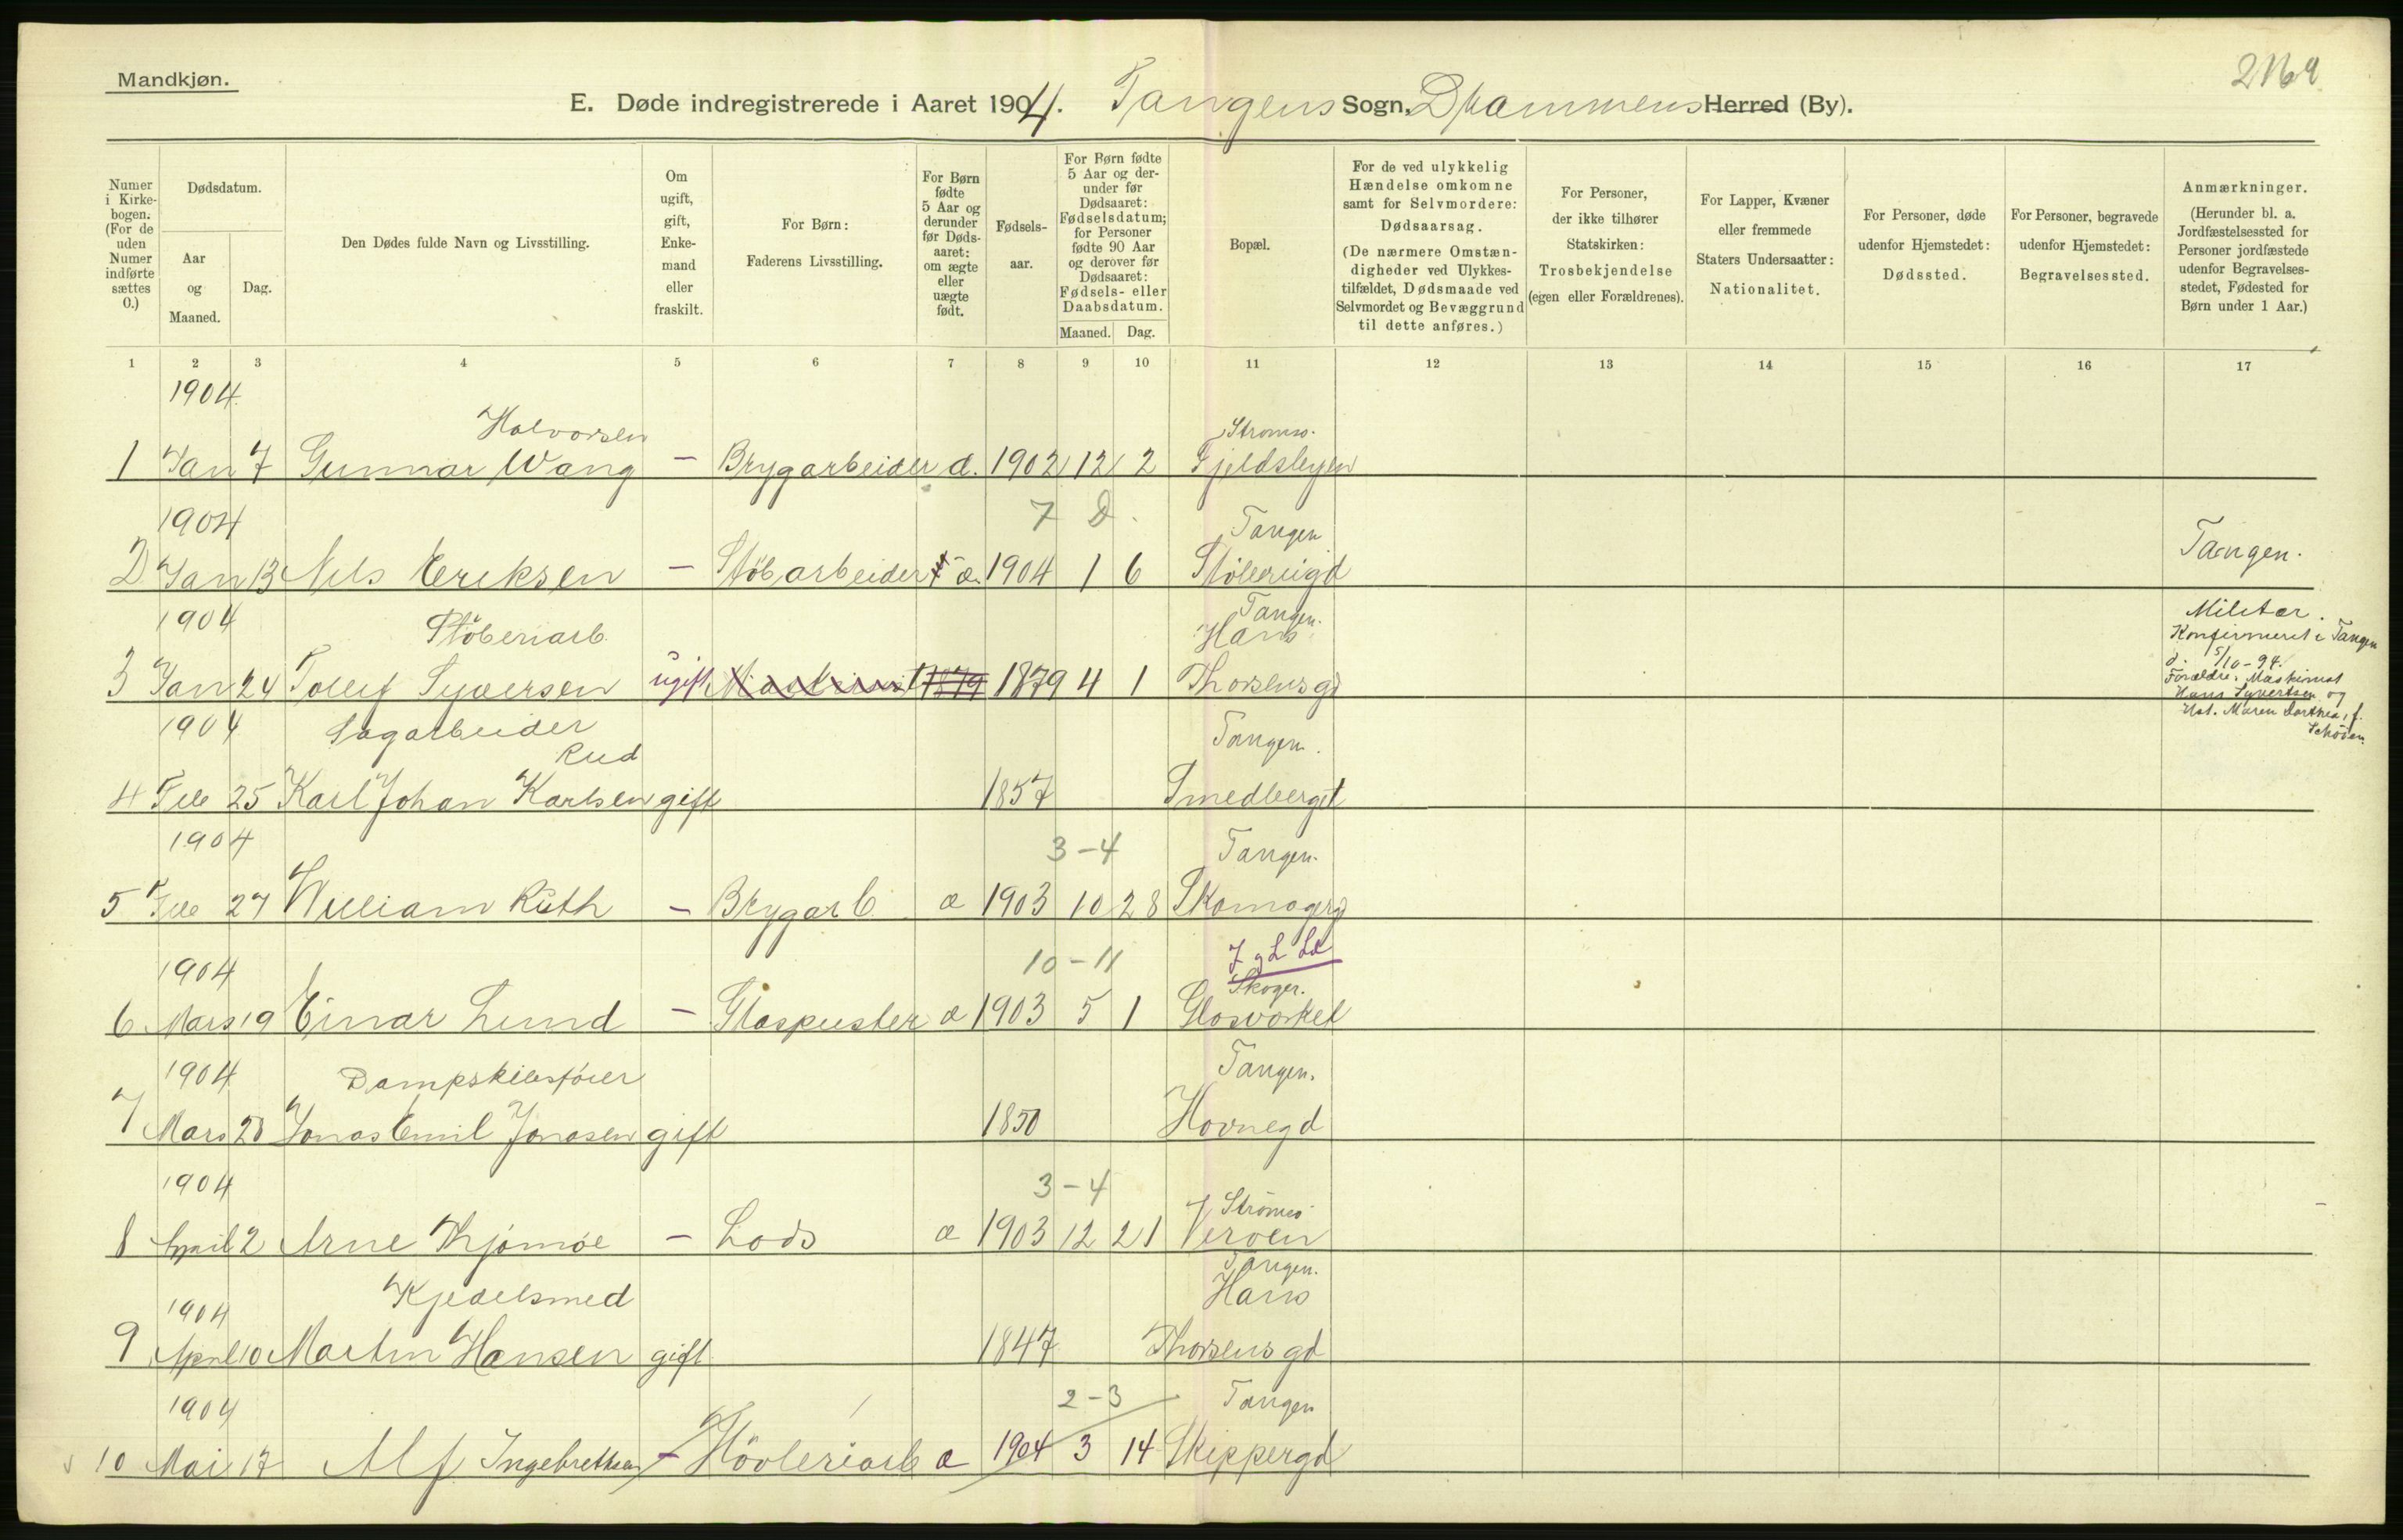 Mandkjøn.
E. Døde indregistrerede i Aaret 1904. Tangens Sogn, Drammens Herred (By).
Numer i Kirkebogen. (For de uden Numer indførte sættes 0.)
Dødsdatum.
Aar og Maaned.
Dag.
Den Dødes fulde Navn og Livsstilling.
Om ugift, gift, Enkemand eller fraskilt.
For Børn: Faderens Livsstilling.
For Børn fødte 5 Aar og derunder før Dødsaaret: om ægte eller uægte født.
Fødselsaar.
For Børn fødte 5 Aar og derunder før Dødsaaret: Fødselsdatum; for Personer fødte 90 Aar og derover før Dødsaaret: Fødsels- eller Daabsdatum.
Maaned. Dag.
Bopæl.
For de ved ulykkelig Hændelse omkomne samt for Selvmordere: Dødsaarsag. (De nærmere Omstændigheder ved Ulykkestilfældet, Dødsmaade ved Selvmordet og Bevæggrund til dette anføres.)
For Personer, der ikke tilhører Statskirken: Trosbekjendelse (egen eller Forældrenes).
For Lapper, Kvæner eller fremmede Staters Undersaatter: Nationalitet.
For Personer, døde udenfor Hjemstedet: Dødssted.
For Personer, begravede udenfor Hjemstedet: Begravelsessted.
Anmærkninger. (Herunder bl. a. Jordfæstelsessted for Personer jordfæstede udenfor Begravelsesstedet, Fødested for Børn under 1 Aar.)
1 2 3 4 5 6 7 8 9 10 11 12 13 14 15 16 17
1904
Halvorsen Strømsø.
1 Jan 7 Gunnar Wang — Brygarbeider æ. 1902 12 2 Fjeldsbyen
1904 7 D. Tangen
2 Jan 13 Nils Eriksen — Støbarbeider æ. 1904 1 6 Støberigd Tangen.
1904 Støberiarb. Tangen. Hans
3 Jan 24 Tollef Syversen ugift 1879 1879 4 1 Thorsensgd
Militær.
Konfirmeret i Tangen
d. 5/10-94.
Forældre: Maskinist
Hans Syvertsen og
Hst. Maren Dorthea, f.
1904 Sagarbeider Rud Tangen.
4 Feb 25 Karl Johan Karlsen gift 1857 Smedberget
1904 3-4 Tangen.
5 Feb 27 William Ruth — Brygarb. æ 1903 10 28 Skomagergd
1904 10-11
Skoger.
6 Mars 19 Einar Lund — Glaspuster æ 1903 5 1 Glasværket
1904 Dampskibsfører Tangen.
7 Mars 28 Jonas Emil Jonasen gift 1850 Havnegd
1904 3-4 Strømsø
8 April 2 Arne Thjømøe — Lods æ 1903 12 21 Verven
1904 Kjedelsmed Tangen. Hans
9 April 10 Martin Hansen gift 1847 Thorsensgd
1904 2-3 Tangen
10 Mai 17 Alf Ingebrethsen — Høvleriarb æ 1904 3 14 Skippergd